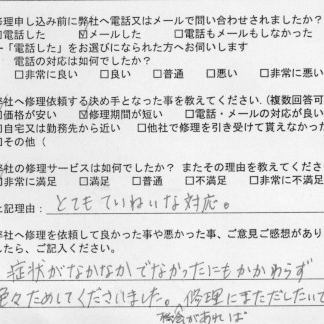 修理申し込み前に弊社へ電話又はメールで問い合わせされましたか?
□電話した ☑メールした □電話もメールもしなかった
「電話した」をお選びになられた方へお伺いします
電話の対応は如何でしたか?
□非常に良い □良い □普通 □悪い □非常に悪い
弊社へ修理依頼する決め手となった事を教えてください.(複数回答可
□価格が安い ☑修理期間が短い □電話・メールの対応が良い
□自宅又は勤務先から近い □他社で修理を引き受けて貰えなかった
□その他（
弊社の修理サービスは如何でしたか? またその理由を教えてくださ
□非常に満足 □満足 □普通 □不満足 □非常に不満
上記理由： とてもていねいな対応。
弊社へ修理を依頼して良かった事や悪かった事、ご意見ご感想があり
したら、ご記入ください。
症状がなかなかでなかったにもかかわらず
色々ためしてくださいました。修理にまただしたいで
機会があれば